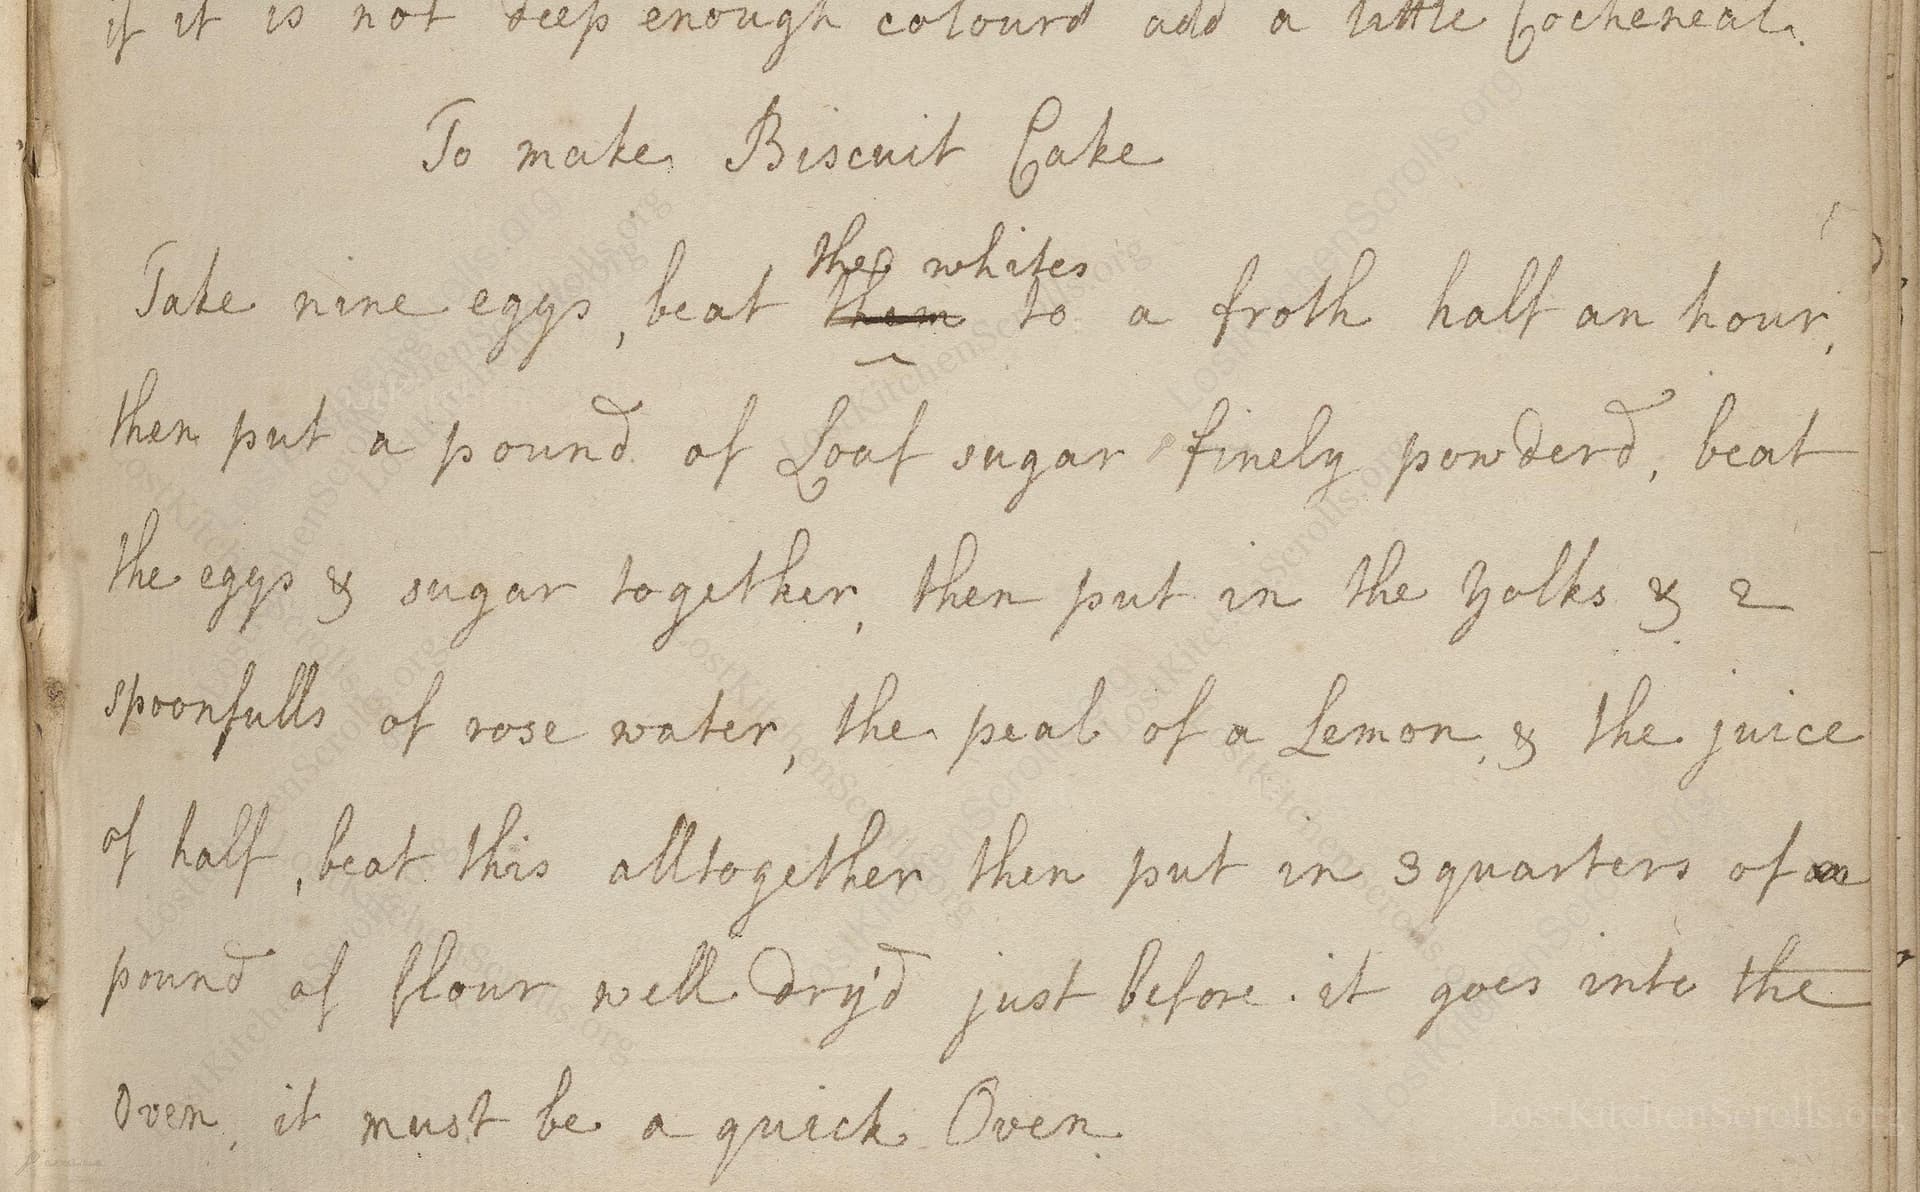 if it is not deep enough colourd add a little Cocheneal.
To make Biscuit Cake
the whites
Take nine eggs, beat them to a froth half an hour,
then put a pound of Loaf sugar finely powderd, beat
the eggs & sugar together, then put in the Yolks & 2
spoonfulls of rose water, the peal of a Lemon, & the juice
of half, beat this alltogether then put in 3 quarters of a
pound of flour well dry'd just before it goes into the
Oven, it must be a quick Oven.
LostKitchenScrolls.org